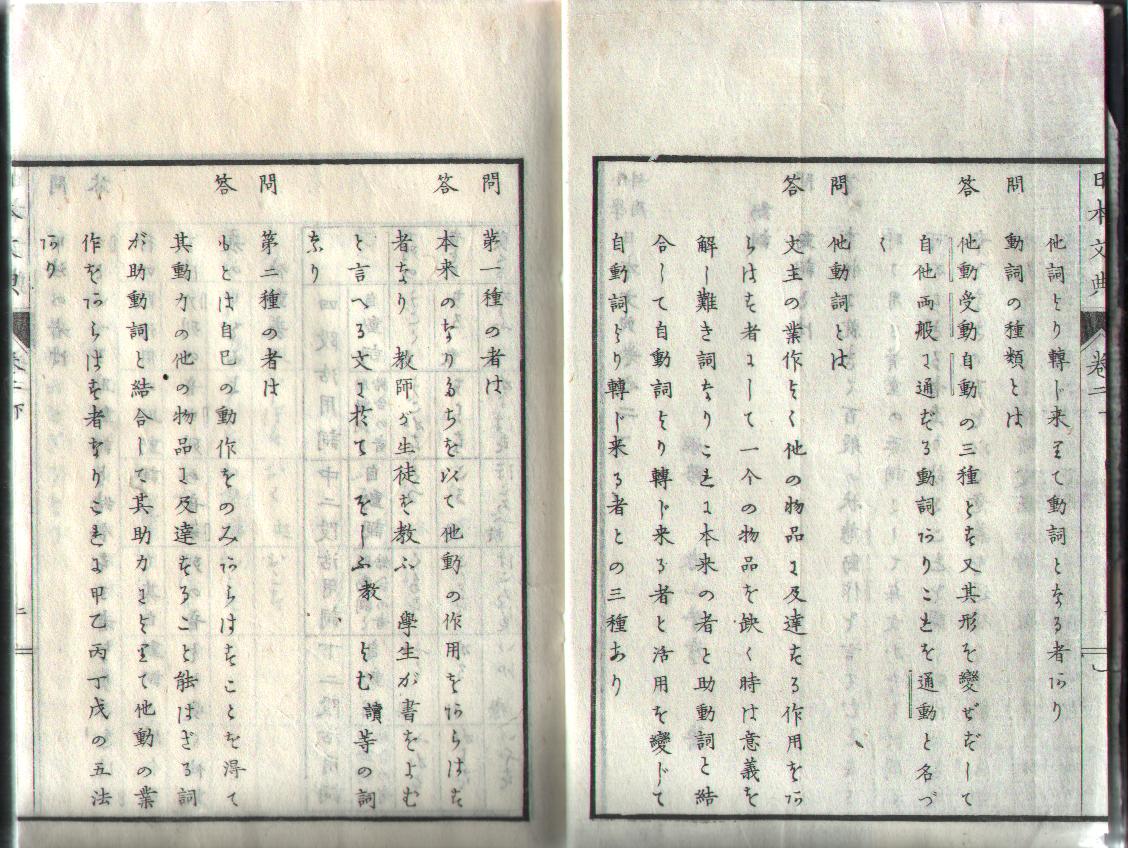 日本文典 卷二下
他詞より轉じ来りて動詞となる者あり
問 動詞の種類とは
答 他動受動自動の三種とす又其形を變ぜずして
自他両般に通ずる動詞ありこれを通動と名づ
く
問 他動詞とは
答 文主の業作よく他の物品に及達する作用をあ
らはす者にして一个の物品を缺く時は意義を
解し難き詞なりこれに本来の者と助動詞と結
合して自動詞より轉じ来る者と活用を變じて
自動詞より轉じ来る者との三種あり
問 第一種の者は
答 本来のなりたちを以て他動の作用をあらはす
者なり 教師が生徒を教ふ 學生が書をよむ
と言へる文に於て をしふ教 よむ讀等の詞
なり
問 第二種の者は
答 もとは自己の動作をのみあらはすことを得て
其動力の他の物品に及達することと能はざる詞
が助動詞と結合して其助力によりて他動の業
作をあらはす者なりこれに甲乙丙丁戊の五法
あり